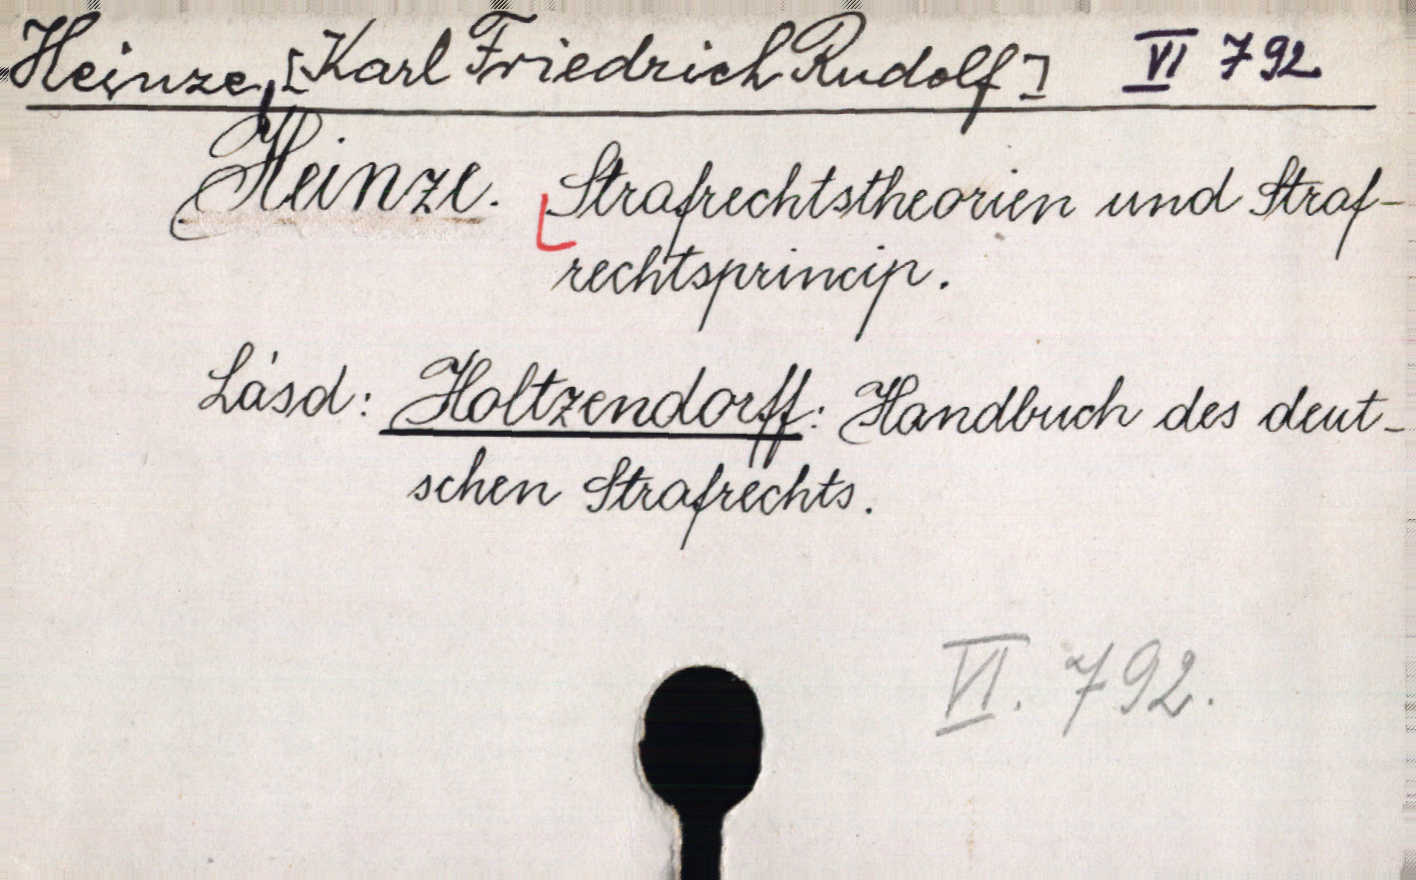 Heinze, [Karl Friedrich Rudolf] VI 792
Heinze. Strafrechtstheorien und Straf-
rechtsprincip.
Lásd: Holtzendorff: Handbuch des deut-
schen Strafrechts.
VI. 792.